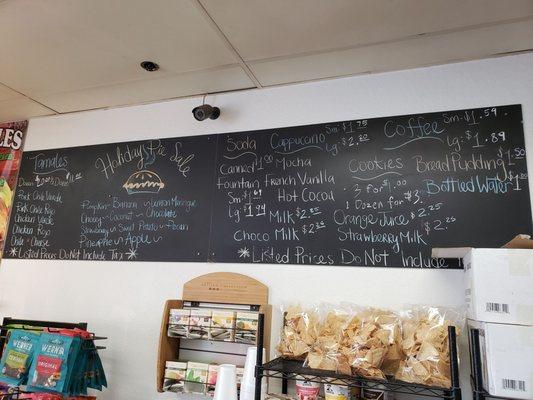 Tamales
Dozen
Pork Chile Rojo
Pork Chile Verde
Chicken Verde
Chicken Rojo
Chile & Cheese
*Listed Prices Do Not Include Tax*
Holiday Pie Sale
Pumpkin ~ Banana ~ Lemon Meringue
Cherry ~ Coconut ~ Chocolate
Strawberry ~ Sweet Potato ~ Pecan
Pineapple ~ Apple
Soda
Canned $1.00
Fountain
Sm $1.69
Lg
Cappuccino
Sm $1.75
Lg $2.
Mocha
French Vanilla
Hot Cocoa
Milk $2.
Choco Milk $2.
*Listed Prices Do Not Include
Coffee
Sm $1.59
Lg $1.89
Cookies
3 for $1.00
1 Dozen for $3.
Bread Pudding
Bottled Water
Orange Juice $2.25
Strawberry Milk $2.25
WERTHER'S
ORIGINAL